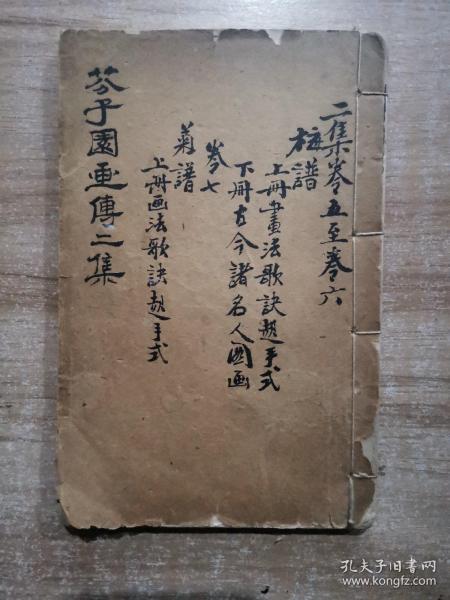 二集卷五至卷六
梅譜
上冊畫法歌訣起手式
下冊古今諸名人圖画
卷七
菊譜
上冊画法歌訣起手式
芥子園画傳二集
孔夫子旧书网
www.kongfz.com